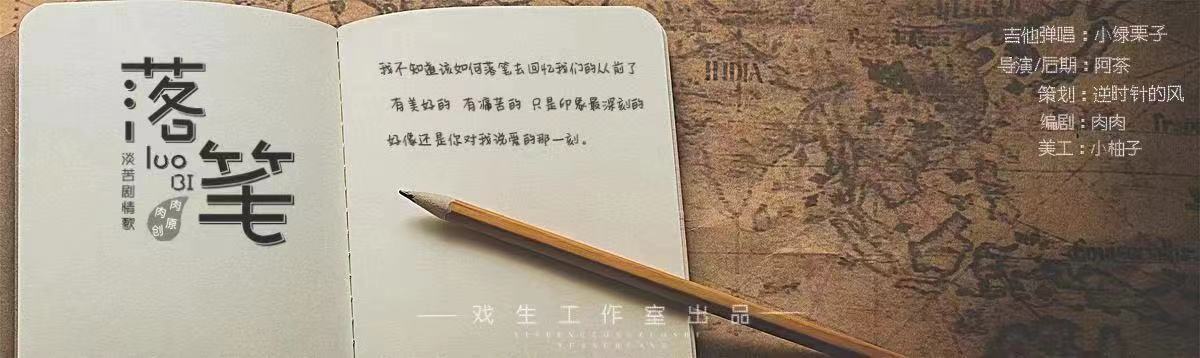 落笔
luo
BI
淡苦剧情歌
肉肉原创
我不知道该如何落笔去回忆我们的从前了
有美好的 有痛苦的 只是印象最深刻的
好像还是你对我说爱的那一刻。
吉他弹唱：小绿栗子
导演/后期：阿茶
策划：逆时针的风
编剧：肉肉
美工：小柚子
INDIA
戏生工作室出品